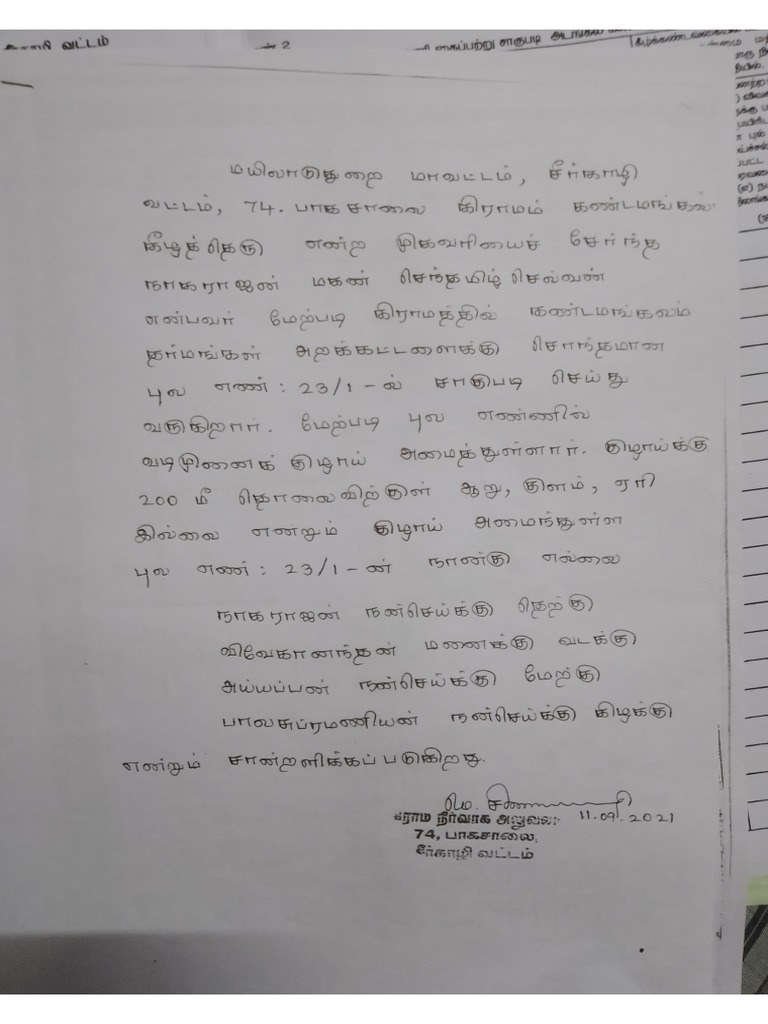 வட்டம்
2
மயிலாடுதுறை மாவட்டம், சீர்காழி
வட்டம், 74. பாகசாலை கிராமம் கண்டமங்கல்
கீழத்தெரு என்ற முகவரியைச் சேர்ந்த
நாகராஜன் மகன் செந்தமிழ் செல்வன்
என்பவர் மேற்படி கிராமத்தில் கண்டமங்கலம்
தர்மங்கள் அறக்கட்டளைக்கு சொந்தமான
புல எண் : 23/1 - ல் சாகுபடி செய்து
வருகிறார். மேற்படி புல எண்ணில்
வடிமுனைக் குழாய் அமைத்துள்ளார். குழாய்க்கு
200 மீ தொலைவிற்குள் ஆறு, குளம், ஏரி
இல்லை எனறும் குழாய் அமைந்துள்ள
புல எண் : 23/1 - ன் நான்கு எல்லை
நாகராஜன் நன்செய்க்கு தெற்கு
விவேகானந்தன் மனைக்கு வடக்கு
அய்யப்பன் நன்செய்க்கு மேற்கு
பாலசுப்ரமணியன் நன்செய்க்கு கிழக்கு
என்றும் சான்றளிக்கப் படுகிறது.
11.09.2021
கிராம நிர்வாக அலுவலர்
74, பாகசாலை,
சீர்காழி வட்டம்